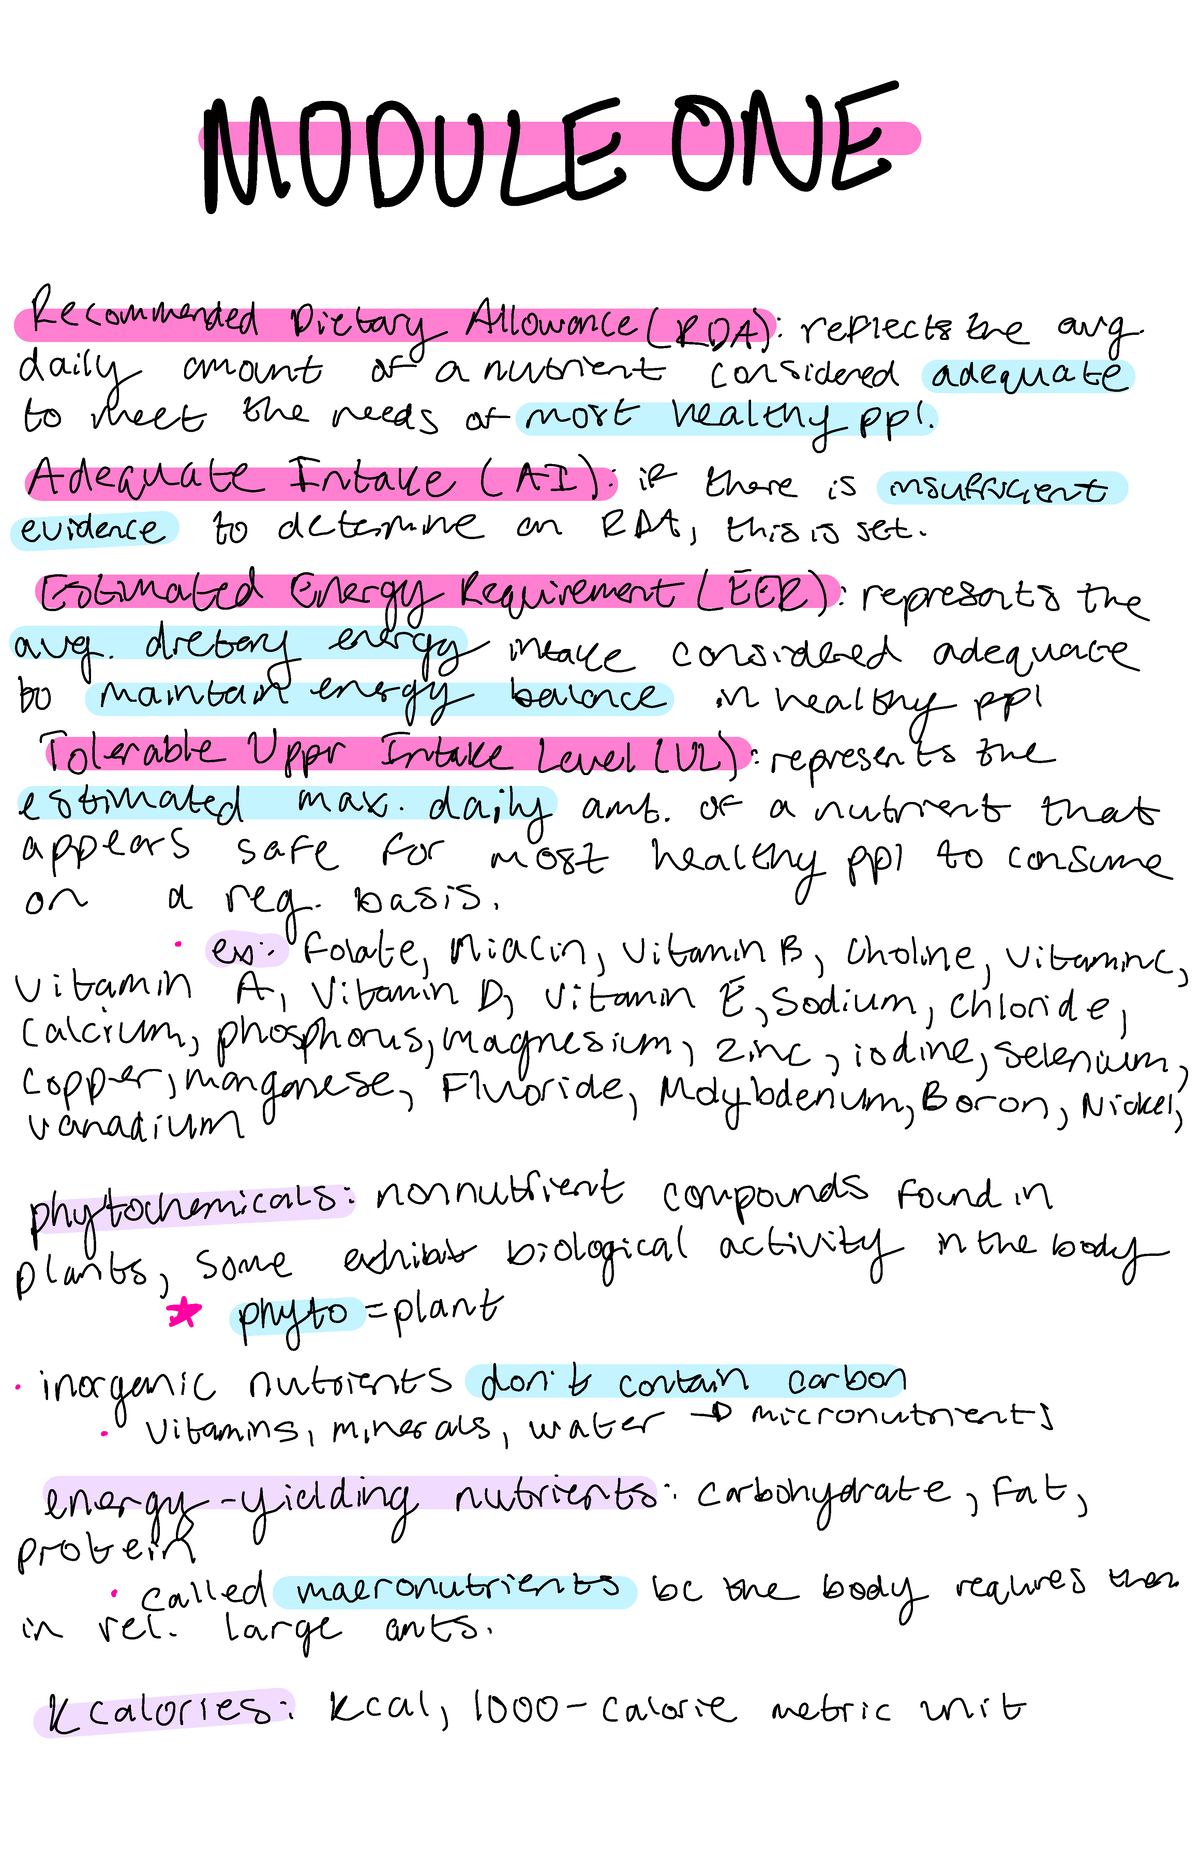 MODULE ONE
Recommended Dietary Allowance (RDA): reflects the avg.
daily amount of a nutrient considered adequate
to meet the needs of most healthy ppl.
Adequate Intake (AI): if there is insufficient
evidence to determine an RDA, this is set.
Estimated Energy Requirement (EER): represents the
avg. dietary energy intake considered adequate
to maintain energy balance in healthy ppl
Tolerable Uppr Intake Level (UL): represents the
estimated max. daily amt. of a nutrient that
appears safe for most healthy ppl to consume
on a reg. basis.
• ex: Folate, Niacin, Vitamin B, Choline, Vitamin C,
Vitamin A, Vitamin D, Vitamin E, Sodium, Chloride,
Calcium, phosphorus, magnesium, zinc, iodine, selenium,
copper, manganese, Fluoride, Molybdenum, Boron, Nickel,
vanadium
phytochemicals: nonnutrient compounds found in
plants, some exhibit biological activity in the body
★ phyto = plant
• inorganic nutrients don't contain carbon
• Vitamins, minerals, water → micronutrients
energy-yielding nutrients: carbohydrate, fat,
protein
• called macronutrients bc the body requires them
in rel. large amts.
Kcalories: Kcal, 1000-calorie metric unit